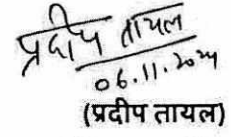 प्रदीप तायल
06.11.2024
(प्रदीप तायल)